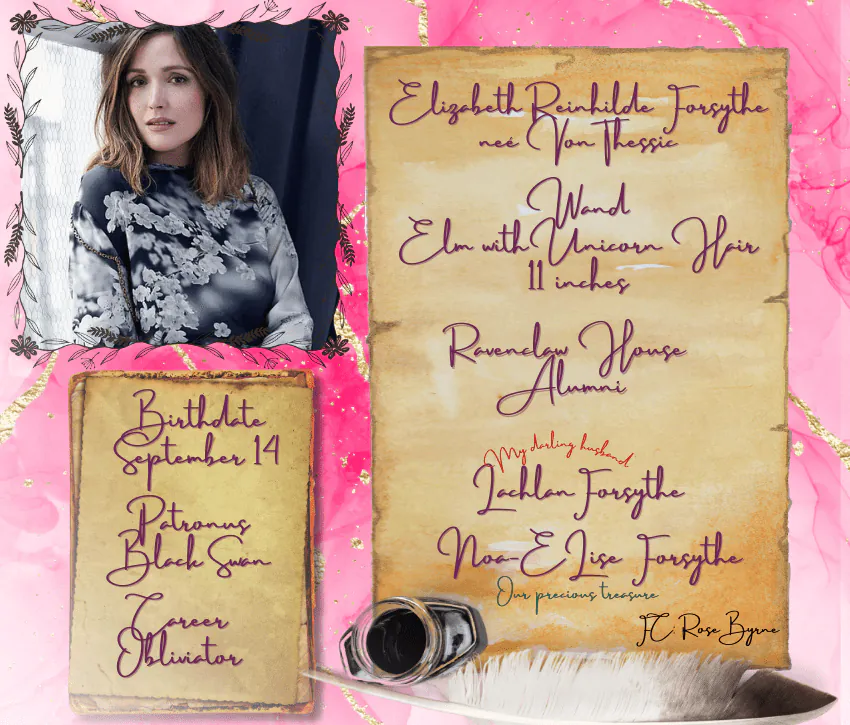 Elizabeth Reinhilde Forsythe
neé Von Thessic
Wand
Elm with Unicorn Hair
11 inches
Ravenclaw House
Alumni
My darling husband
Lachlan Forsythe
Noa-E Lise Forsythe
Our precious treasure
FC: Rose Byrne
Birthdate
September 14
Patronus
Black Swan
Career
Obliviator